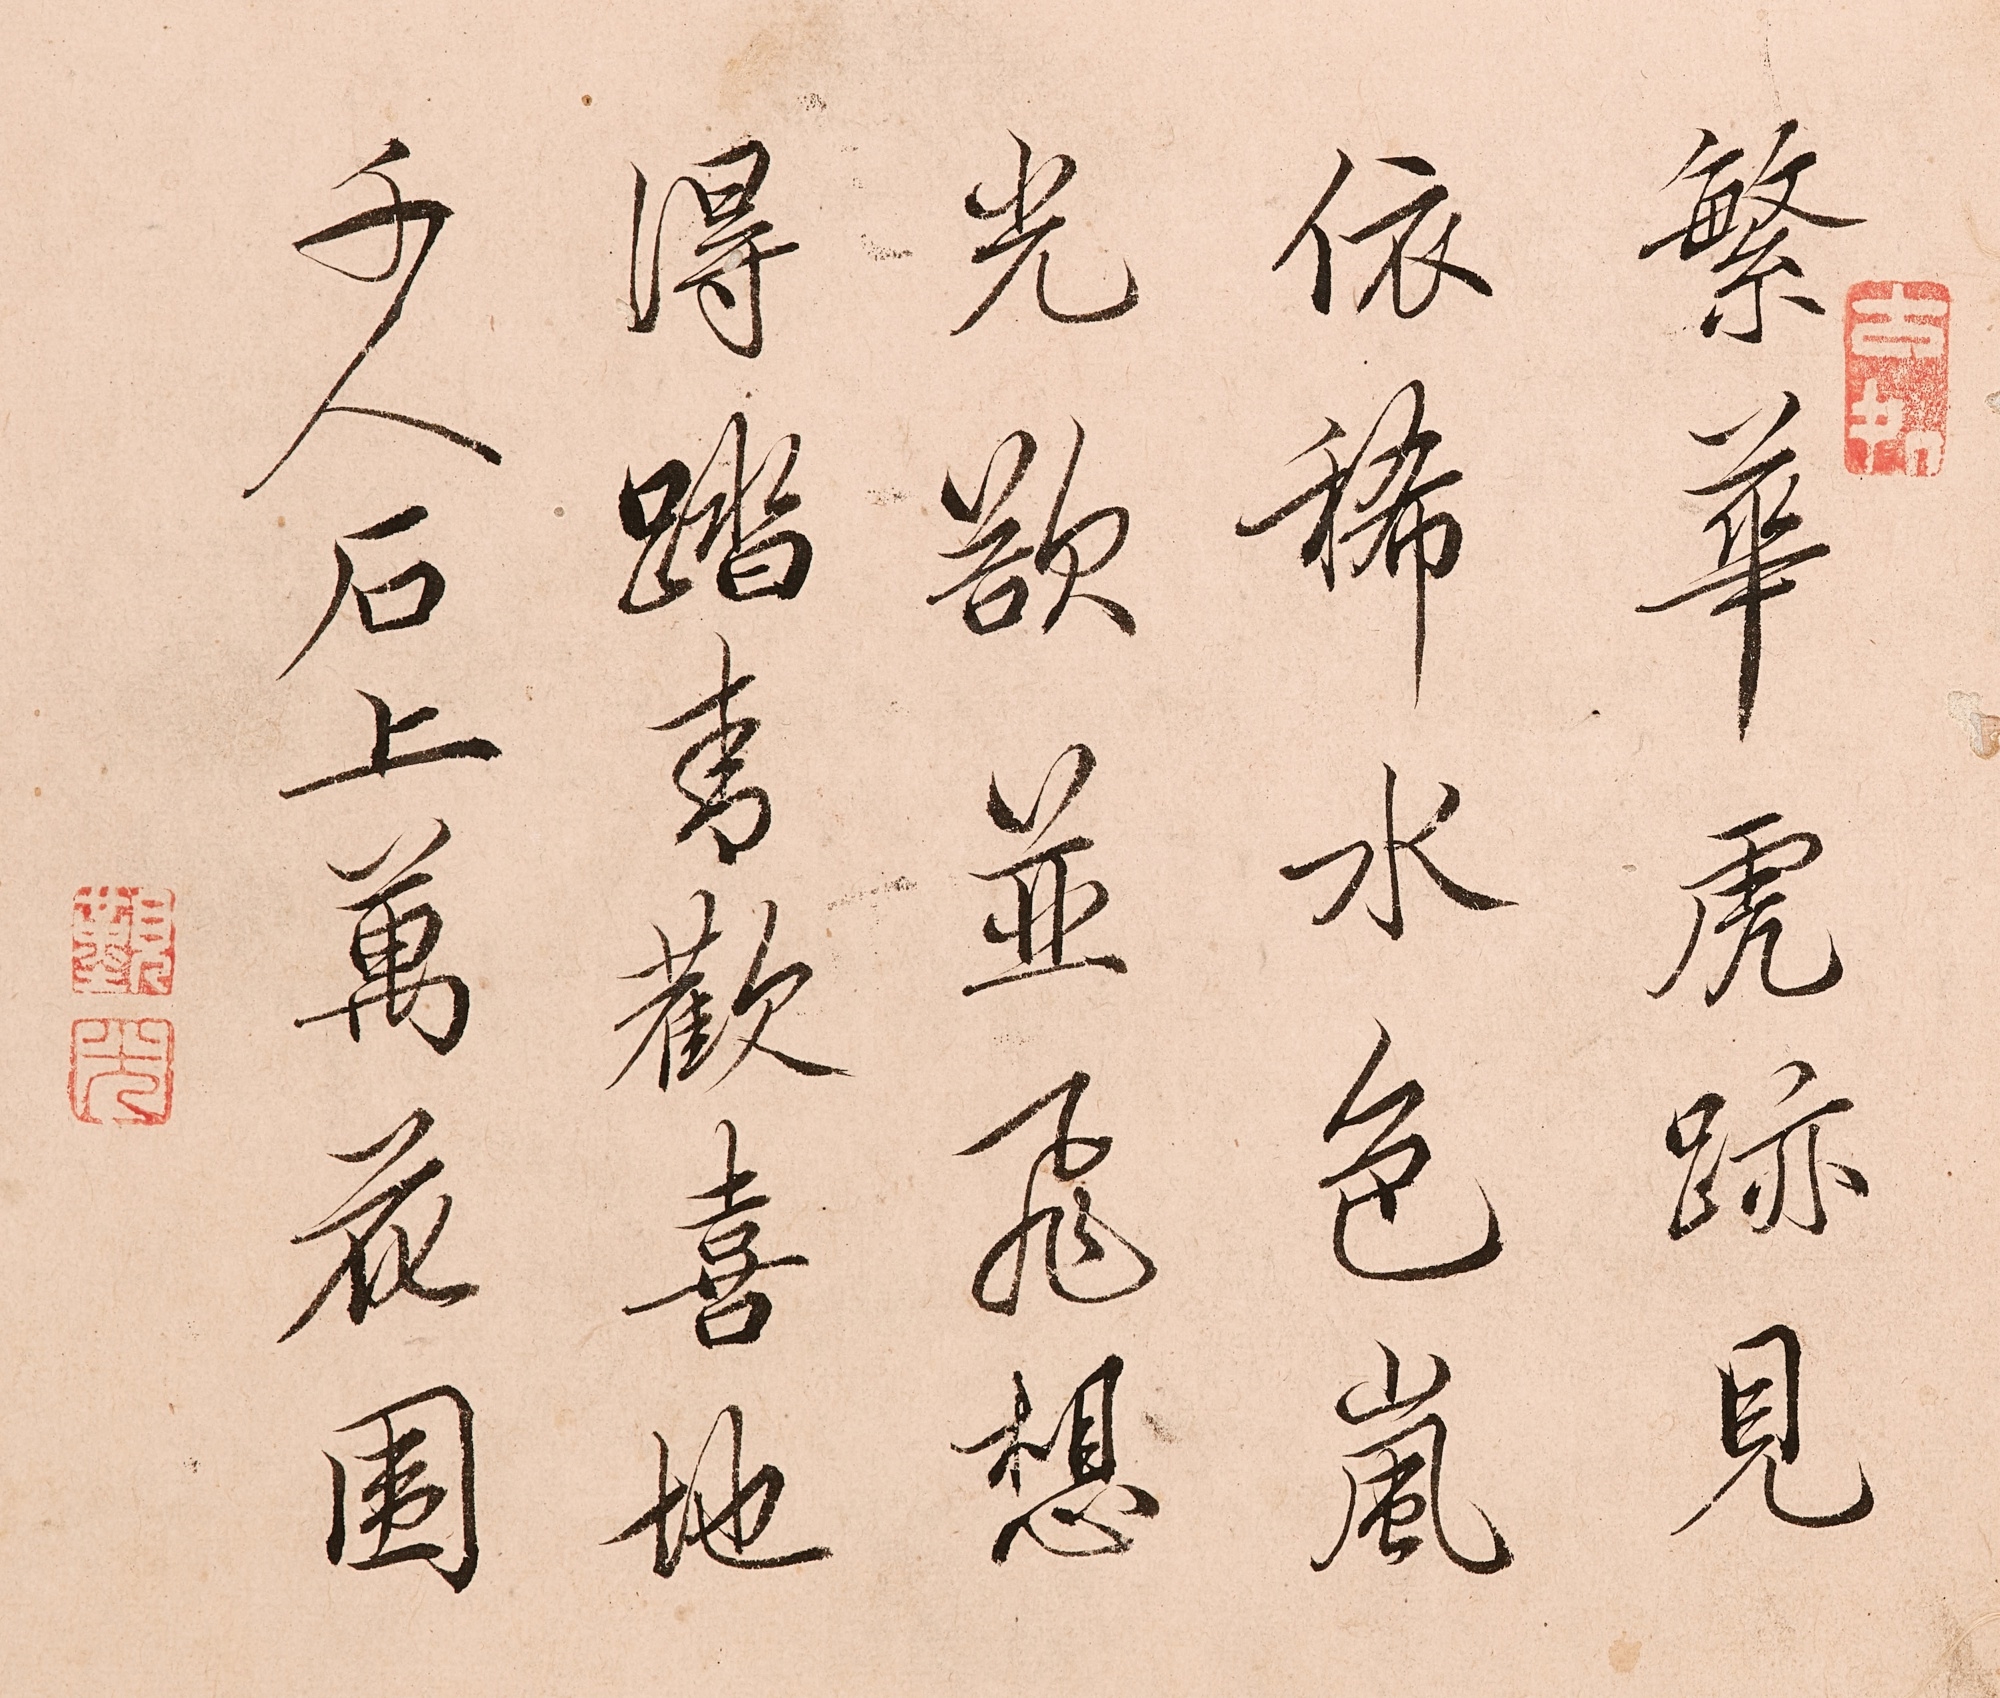 繁華虎跡見
依稀水色嵐
光欲並飛想
得踏青歡喜地
千人石上萬花圍